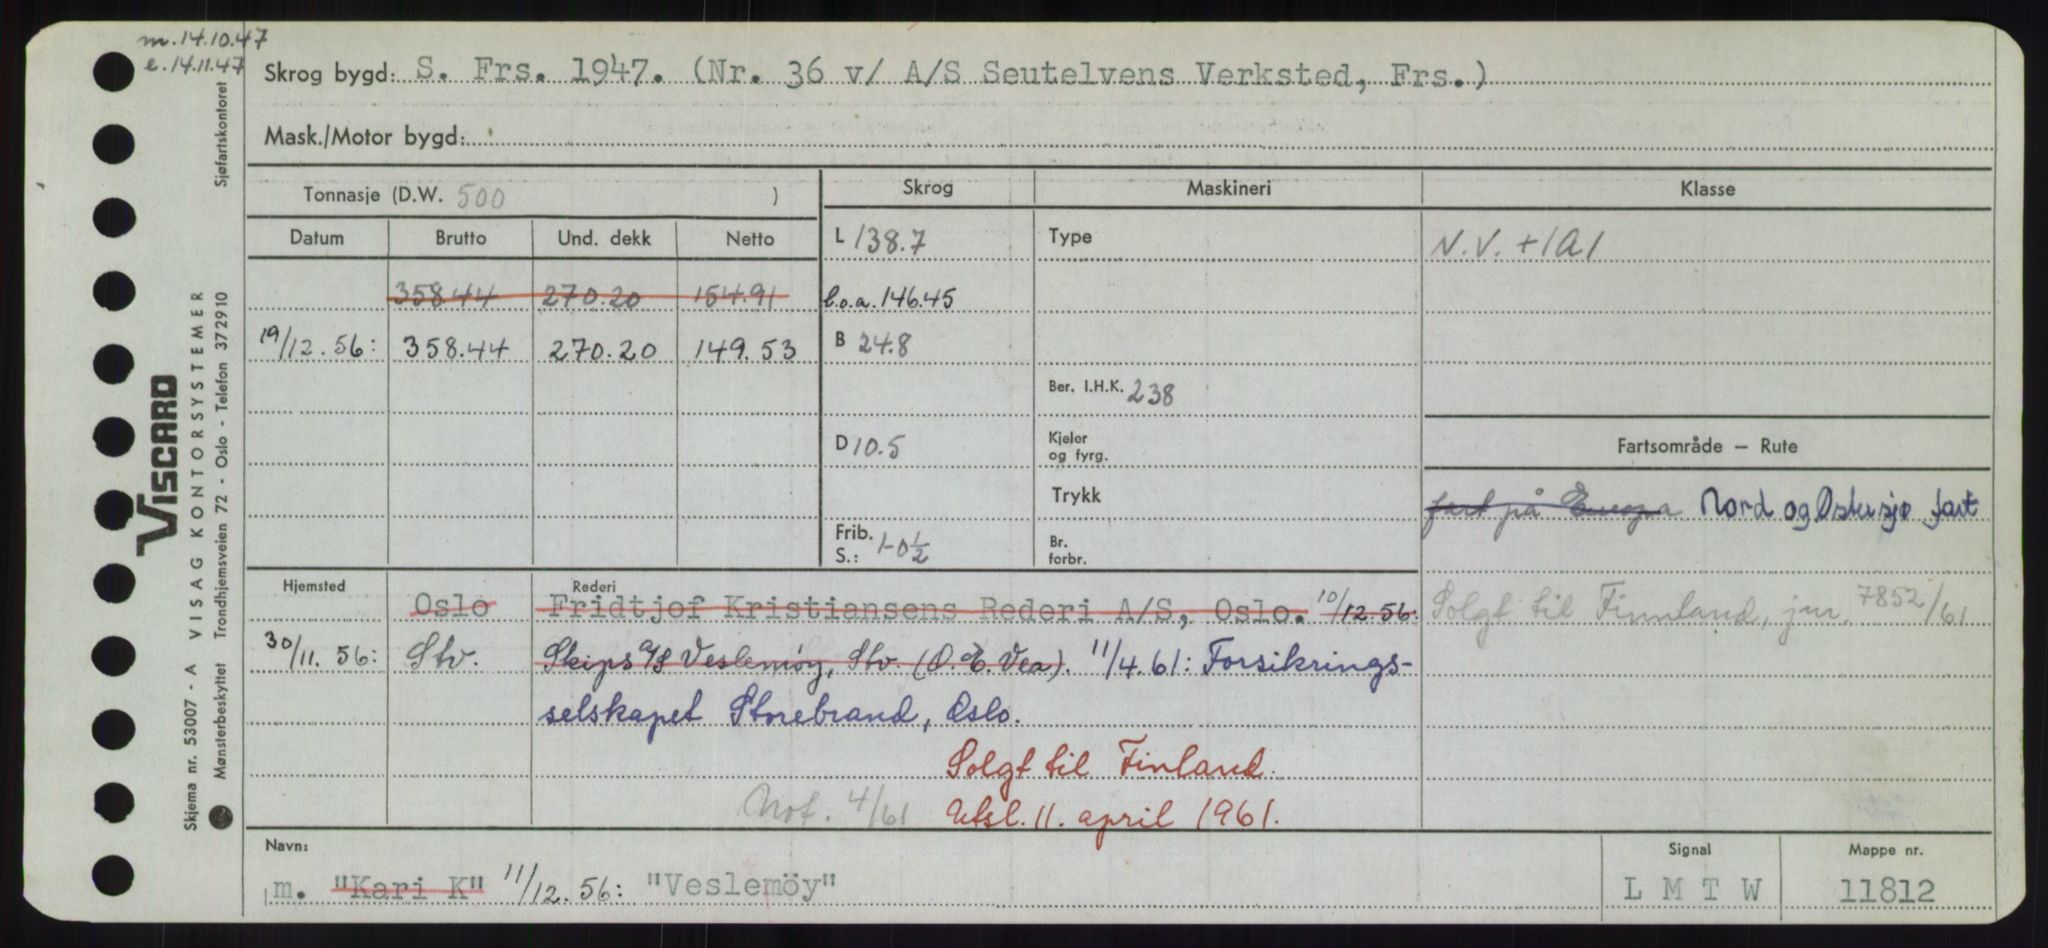 m. 14.10.47
e. 14.11.47
Skrog bygd: S. Frs. 1947. (Nr. 36 v/ A/S Seutelvens Verksted, Frs.)
Mask./Motor bygd:
Tonnasje (D.W. 500 )
Skrog Maskineri Klasse
Datum Brutto Und. dekk Netto
L 138.7 Type N.V. +1A1
358.44 270.20 154.91
l.o.a. 146.45
19/12.56: 358.44 270.20 149.53
B 24.8
Ber. I.H.K. 238
D 10.5 Kjeler
og fyrg.
Fartsområde – Rute
Trykk
fart på Europa Nord og Østersjø fart
Frib.
S.: 1-0½
Br.
forbr.
Hjemsted Rederi
Oslo Fridtjof Kristiansens Rederi A/S, Oslo. 10/12.56:
Solgt til Finnland, jnr. 7852/61
30/11.56: Stv. Skips A/S Veslemøy, Stv. (O. E. Vea). 11/4.61: Forsikrings-
selskapet Storebrand, Oslo.
Solgt til Finland.
Not. 4/61 Utsl. 11. april 1961.
Navn: Signal Mappe nr.
m. "Kari K" 11/12.56: "Veslemöy" L M T W 11812
Sjøfartskontoret
VISCARD
VISAG KONTORSYSTEMER
Skjema nr. 53007 - A
Mønsterbeskyttet Trondhjemsveien 72 - Oslo - Telefon 372910